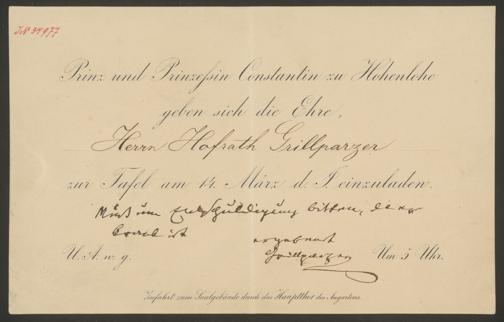 J.N 34977
Prinz und Prinzessin Constantin zu Hohenlohe
geben sich die Ehre,
Herrn Hofrath Grillparzer
zur Tafel am 14. März d. J. einzuladen.
Muß um Entschuldigung bitten, da er
krank ist
ergebenst
Grillparzer
U. A. w. g.
Um 5 Uhr.
Zufahrt zum Saalgebäude durch das Hauptthor des Augartens.